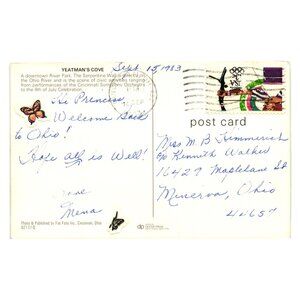 YEATMAN'S COVE
A downtown River Park. The Serpentine Wall
the Ohio River and is the scene of civic activities ranging
from performances of the Cincinnati Symphony Orchestra
to the 4th of July Celebration.
Sept. 15, 1983
Hi Princess,
Welcome Back
to Ohio!
Hope all is Well!
Love
Mena
post card
Miss M B Kimmerich
c/o Kenneth Walker
16427 Maplelane Dr
Minerva, Ohio
44657
Photo & Published by Cincinnati, Ohio